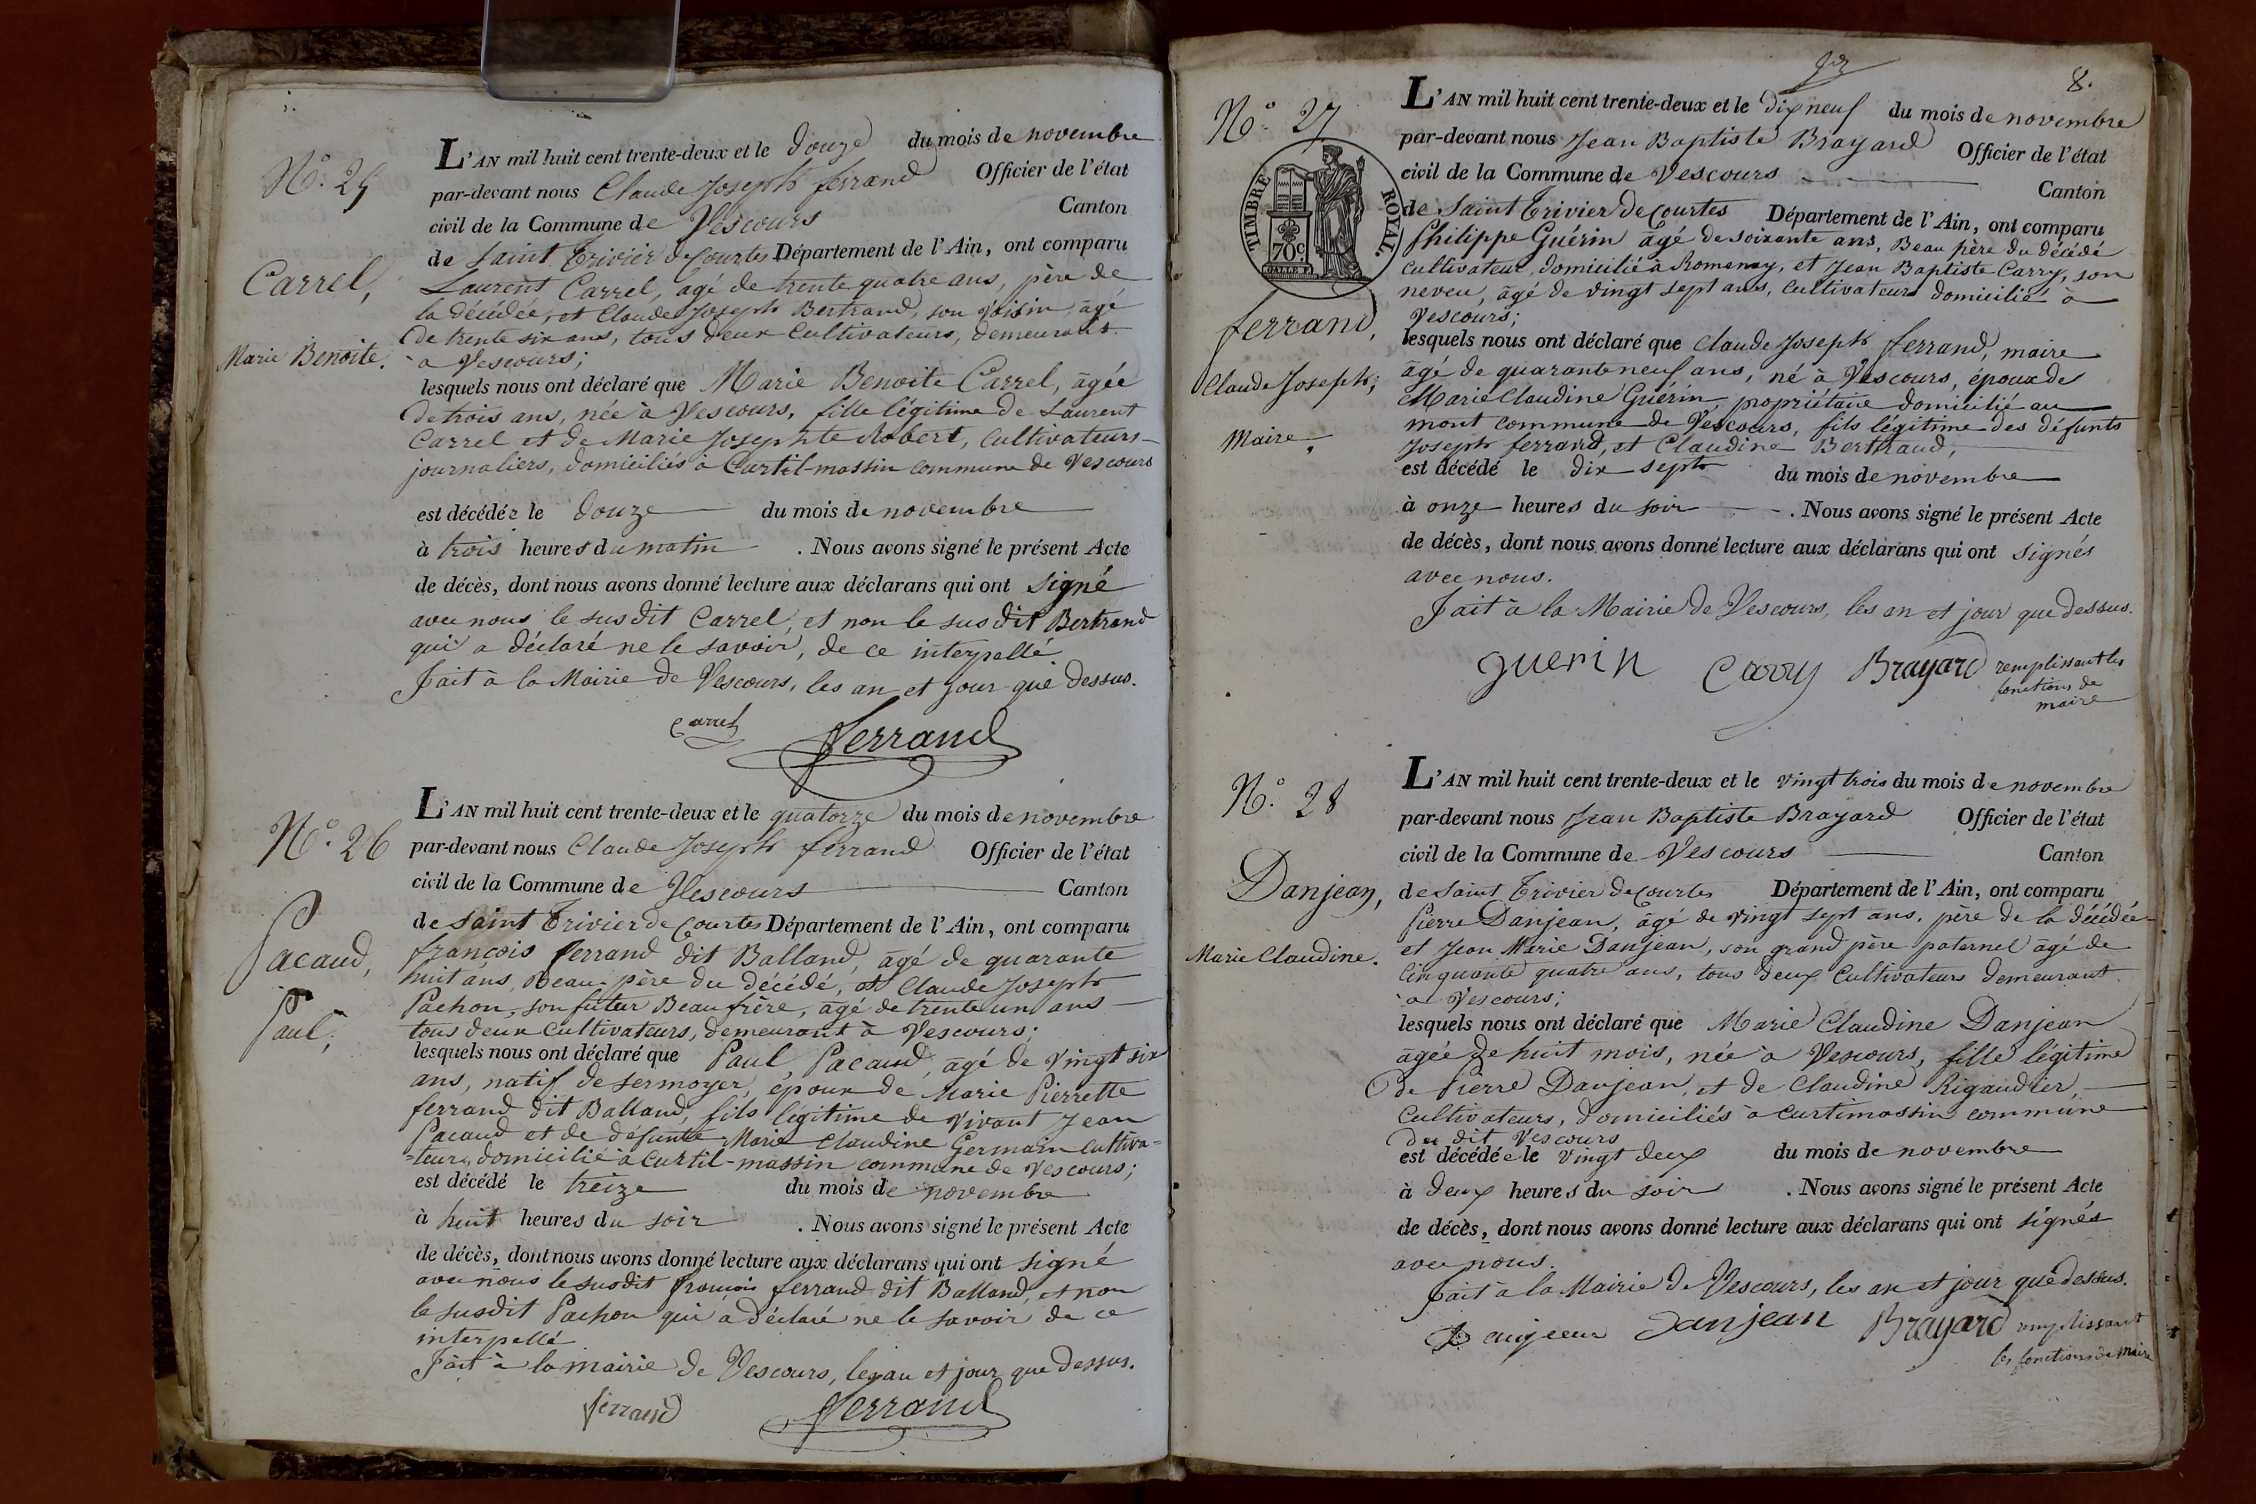 N.° 25
Carrel,
Marie Benoite.
L'AN mil huit cent trente-deux et le douze du mois de novembre
par-devant nous Claude Joseph ferrand Officier de l'état
civil de la Commune de Vescours Canton
de Saint Trivier de Courtes Département de l'Ain, ont comparu
Laurent Carrel, agé de trente quatre ans, père de
la décédée, et Claude Joseph Bertrand, son voisin, agé
de trente six ans, tous deux cultivateurs, demeurant
à Vescours;
lesquels nous ont déclaré que Marie Benoite Carrel, agée
de trois ans, née à Vescours, fille légitime de Laurent
Carrel et de Marie Josephte Robert, cultivateurs-
journaliers, domiciliés à Curtil-massin commune de Vescours
est décédée le douze du mois de novembre
à trois heures du matin . Nous avons signé le présent Acte
de décès, dont nous avons donné lecture aux déclarans qui ont signé
avec nous le susdit Carrel, et non le susdit Bertrand
qui a déclaré ne le savoir, de ce interpellé
fait à la Mairie de Vescours, les an et jour que dessus.
Carrel ferrand
N.° 26
Pacaud,
Paul,
L'AN mil huit cent trente-deux et le quatorze du mois de novembre
par-devant nous Claude Joseph ferrand Officier de l'état
civil de la Commune de Vescours Canton
de Saint Trivier de Courtes Département de l'Ain, ont comparu
françois ferrand dit Balland, agé de quarante
huit ans, Beau-père du décédé, et Claude Joseph
Pachon, son futur Beau frère, agé de trente un ans
tous deux cultivateurs, demeurant à Vescours;
lesquels nous ont déclaré que Paul Pacaud, agé de vingt six
ans, natif de sermoyer, époux de Marie Pierrette
ferrand dit Balland, fils légitime de vivant Jean
Pacaud et de défunte Marie Claudine Germain cultiva-
-teur, domicilié à Curtil-massin commune de Vescours;
est décédé le treize du mois de novembre
à huit heures du soir . Nous avons signé le présent Acte
de décès, dont nous avons donné lecture aux déclarans qui ont signé
avec nous le susdit françois ferrand dit Balland, et non
le susdit Pachon qui a déclaré ne le savoir de ce
interpellé
fait à la mairie de Vescours, les an et jour que dessus.
ferrand ferrand
8.
N.° 27
TIMBRE ROYAL.
70c
ferrand,
Claude Joseph;
Maire.
L'AN mil huit cent trente-deux et le dix neuf du mois de novembre
par-devant nous Jean Baptiste Brayard Officier de l'état
civil de la Commune de Vescours Canton
de Saint Trivier de Courtes Département de l'Ain, ont comparu
Philippe Guérin agé de soixante ans, Beau père du décédé
cultivateur, domicilié à Romenay, et Jean Baptiste Carry, son
neveu, agé de vingt sept ans, cultivateur domicilié à
Vescours;
lesquels nous ont déclaré que Claude Joseph ferrand, maire
agé de quarante neuf ans, né à Vescours, époux de
Marie Claudine Guérin, propriétaire domicilié au
mont commune de Vescours, fils légitime des défunts
Joseph ferrand, et Claudine Bertrand,
est décédé le dix sept du mois de novembre
à onze heures du soir . Nous avons signé le présent Acte
de décès, dont nous avons donné lecture aux déclarans qui ont signés
avec nous.
fait à la Mairie de Vescours, les an et jour que dessus.
guerin Carry Brayard remplissant les
fonctions de
maire
N.° 28
Danjean,
Marie Claudine.
L'AN mil huit cent trente-deux et le vingt trois du mois de novembre
par-devant nous Jean Baptiste Brayard Officier de l'état
civil de la Commune de Vescours Canton
de Saint Trivier de Courtes Département de l'Ain, ont comparu
Pierre Danjean, agé de vingt sept ans, père de la décédée
et Jean Marie Danjean, son grand père paternel agé de
cinquante quatre ans, tous deux cultivateurs demeurant
à Vescours;
lesquels nous ont déclaré que Marie Claudine Danjean
agée de huit mois, née à Vescours, fille légitime
de Pierre Danjean, et de Claudine Rigaudier,
cultivateurs, domiciliés à curtimassin commune
du dit Vescours
est décédée le vingt deux du mois de novembre
à deux heures du soir . Nous avons signé le présent Acte
de décès, dont nous avons donné lecture aux déclarans qui ont signés
avec nous.
fait à la Mairie de Vescours, les an et jour que dessus.
Danjean Brayard remplissant
les fonctions de maire